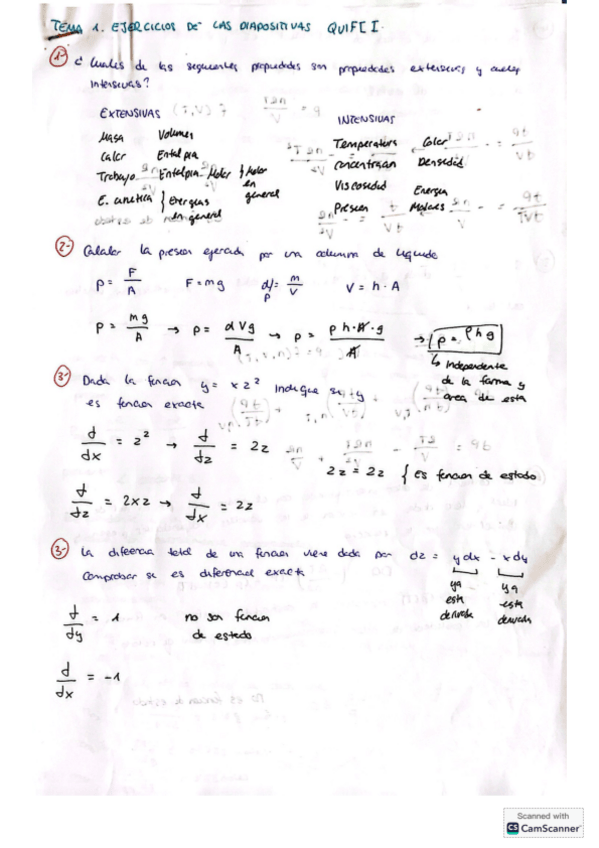 TEMA 1. EJERCICIOS DE LAS DIAPOSITIVAS QUIFI I.
1- ¿Cuales de las siguientes propiedades son propiedades extensivas y cuales
intensivas?
EXTENSIVAS
Masa Volumen
Calor Entalpia
Trabajo Entalpia Molar } Molar en general
E. cinetica } Energias en general
INTENSIVAS
Temperatura Color
Concentracion Densidad
Viscosidad Energias
Presion Molares
2- Calcular la presion ejercida por una columna de liquido
P = F/A F = mg d/ρ = m/V V = h · A
P = mg/A → P = dVg/A → P = ρh·A·g/A → P = ρhg
↳ Independiente
de la forma y
area de esta
3- Dada la funcion y = xz² indique si y
es funcion exacta
d/dx = z² → d/dz = 2z
2z = 2z { es funcion de estado
d/dz = 2xz → d/dx = 2z
3- La diferencia total de una funcion viene dada por dz = ydx - xdy
Comprobar si es diferencial exacta
ya esta derivada ya esta derivada
d/dy = 1 no son funcion
de estado
d/dx = -1
Scanned with
CS CamScanner